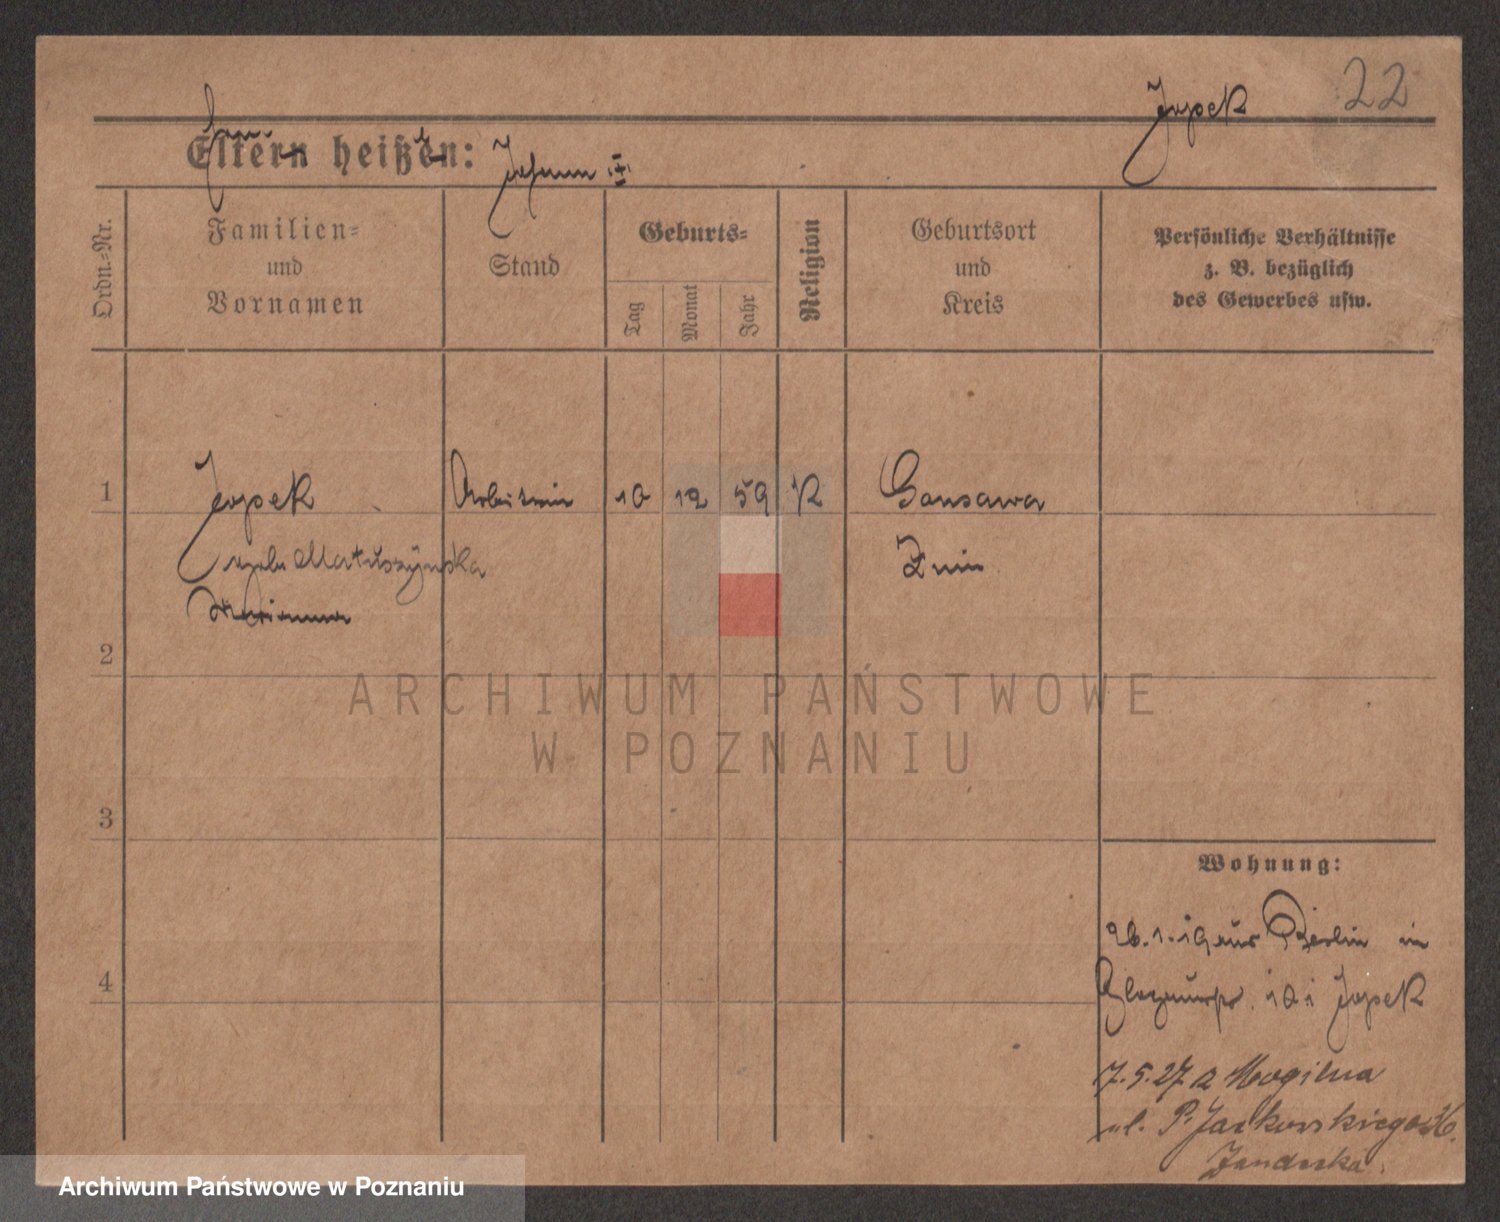 Jopek 22
Eltern heißen: Johann
Ordn.-Nr.
Familien-
und
Vornamen
Stand
Geburts-
Tag
Monat
Jahr
Religion
Geburtsort
und
Kreis
Persönliche Verhältnisse
z. B. bezüglich
des Gewerbes usw.
1 Jopek Arbeiterin 10 12 59 K Gonsawa
geb. Matuszyńska Znin
Marianna
2
ARCHIWUM PAŃSTWOWE
W POZNANIU
3
Wohnung:
26.1.19 aus Berlin in
Glogauerstr. 101 Jopek
4
7.5.27 z Mogilna
ul. P. Jackowskiego 36.
Archiwum Państwowe w Poznaniu